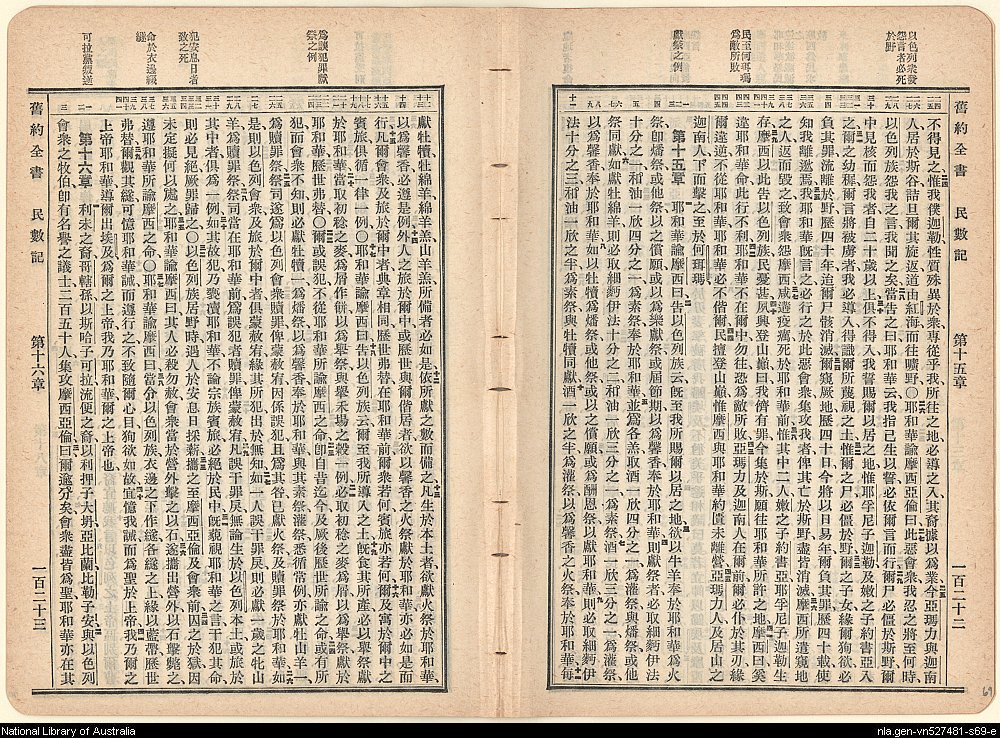 以色列衆發怨言者必死於野
民至何珥瑪為敵所敗
獻祭之例
舊約全書 民數記 第十五章 一百二十二
不得見之惟我僕迦勒性質殊異於衆專從乎我所往之地必導之入其裔據以為業今亞瑪力與迦南
人居於斯谷詰旦爾其旋返道由紅海而往曠野〇耶和華諭摩西亞倫曰此惡會衆我忍之將至何時
以色列族怨我之言我聞之矣當告之曰耶和華云我指己生以誓必依爾言而行爾尸必僵於斯野爾
中見核而怨我者自二十歲以上俱不得入我誓賜爾以居之地惟耶孚尼子迦勒及嫩之子約書亞入
之爾之幼稺爾言將被虜者我必導入得識爾所藐視之土惟爾之尸必僵於野爾之子女緣爾狥欲必
負其罪流離於野歷四十年迨爾尸骸消滅爾窺厥地歷四十日今將以日易年爾負其罪歷四十載使
知我離逖焉我耶和華旣言之必行之於此惡會衆集攻我者俾其亡於斯野盡皆消滅摩西所遣窺地
之人返而毀之致會衆怨摩西咸遘疫癘死於耶和華前惟其中二人嫩之子約書亞耶孚尼子迦勒生
存摩西以此告以色列族民憂甚夙興登山巔曰我儕有罪今集於斯願往耶和華所許之地摩西曰奚
違耶和華命此行不利耶和華不在爾中勿往恐為敵所敗亞瑪力及迦南人在爾前爾必仆於其刃緣
爾違逆不從耶和華耶和華必不偕爾民擅登山巔惟摩西與耶和華約匱未離營亞瑪力人及居山之
迦南人下而擊之至於何珥瑪
第十五章 耶和華諭摩西曰告以色列族云旣至我所賜爾以居之地欲以牛羊奉於耶和華為火
祭卽燔祭或他祭以之償願或以為樂獻祭或屆節期以為馨香奉於耶和華則獻祭者必取細麪伊法
十分之一和油一欣四分之一以為素祭奉於耶和華並為各羔取酒一欣四分之一為灌祭與燔祭或他
祭同獻如獻牡綿羊則必取細麪伊法十分之二和油一欣三分之一為素祭酒一欣三分之一為灌祭
以為馨香奉於耶和華如以牡犢為燔祭或他祭或以之償願或為酬恩祭以獻耶和華則必取細麪伊
法十分之三和油一欣之半為素祭與牡犢同獻酒一欣之半為灌祭以為馨香之火祭奉於耶和華每
為誤犯罪獻祭之例
犯安息日者致之死
命於衣邊綴繸
可拉黨叛逆
獻牡犢牡綿羊綿羊羔山羊羔所備者必如是依所獻之數而備之凡生於本土者欲獻火祭於耶和華
以為馨香必遵是例外人之旅於爾中或歷世與爾偕居者欲以馨香之火祭獻於耶和華亦必如是而
行凡爾會衆及旅於爾中者典章相同歷世弗替在耶和華前爾衆若何賓旅亦若何爾及寓於爾中之
賓旅俱循一律一例〇耶和華諭摩西曰告以色列族云爾至我所導入之土旣食其所產必以舉祭獻
於耶和華當取初稔之麥為屑作餅以為舉祭與舉禾場之穀一例必取初稔之麥為屑以為舉祭獻於
耶和華歷世弗替〇爾或誤犯不從耶和華所諭摩西之命卽自昔迄今及厥後歷世所諭之命或有所
犯而會衆不知則必獻牡犢一為燔祭以為馨香奉於耶和華與其素祭灌祭悉循常例亦獻牡山羊一
為贖罪祭祭司為以色列會衆贖罪俾蒙赦宥因係誤犯且為其咎已獻火祭及贖罪祭於耶和華如
是則以色列會衆及旅於爾中者俱蒙赦宥緣其所犯出於無知如一人誤干罪戾則必獻一歲之牝山
羊為贖罪祭祭司當在耶和華前為誤犯者贖罪俾蒙赦宥凡誤干罪戾無論生於以色列本土或旅於
其中者俱為一例如其故犯乃褻瀆耶和華不論宗族賓旅必絕於民中旣藐視耶和華之言干犯其命
則必見絕厥罪歸之〇以色列族居野時遇人於安息日採薪攜之至摩西亞倫及會衆前囚之於獄因
未定擬何以處之耶和華諭摩西曰其人必殺勿赦會衆當於營外擊之以石遂攜出營外以石擊斃之
遵耶和華所諭摩西之命〇耶和華諭摩西曰當令以色列族衣邊之下作繸各繸之上緣以藍帶歷世
弗替爾觀其繸可憶耶和華誡而遵行之不致隨爾心目狥欲如故宜憶我誡而為聖於上帝我乃爾之
上帝耶和華導爾出埃及為爾之上帝我乃耶和華爾之上帝也
第十六章 利未之裔哥轄孫以斯哈子可拉流便之裔以利押子大坍亞比蘭比勒子安與以色列
會衆之牧伯卽有名譽之議士二百五十人集攻摩西亞倫曰爾逾分矣會衆盡皆為聖耶和華亦在其
舊約全書 民數記 第十六章 一百二十三
69
National Library of Australia
nla.gen-vn527481-s69-e